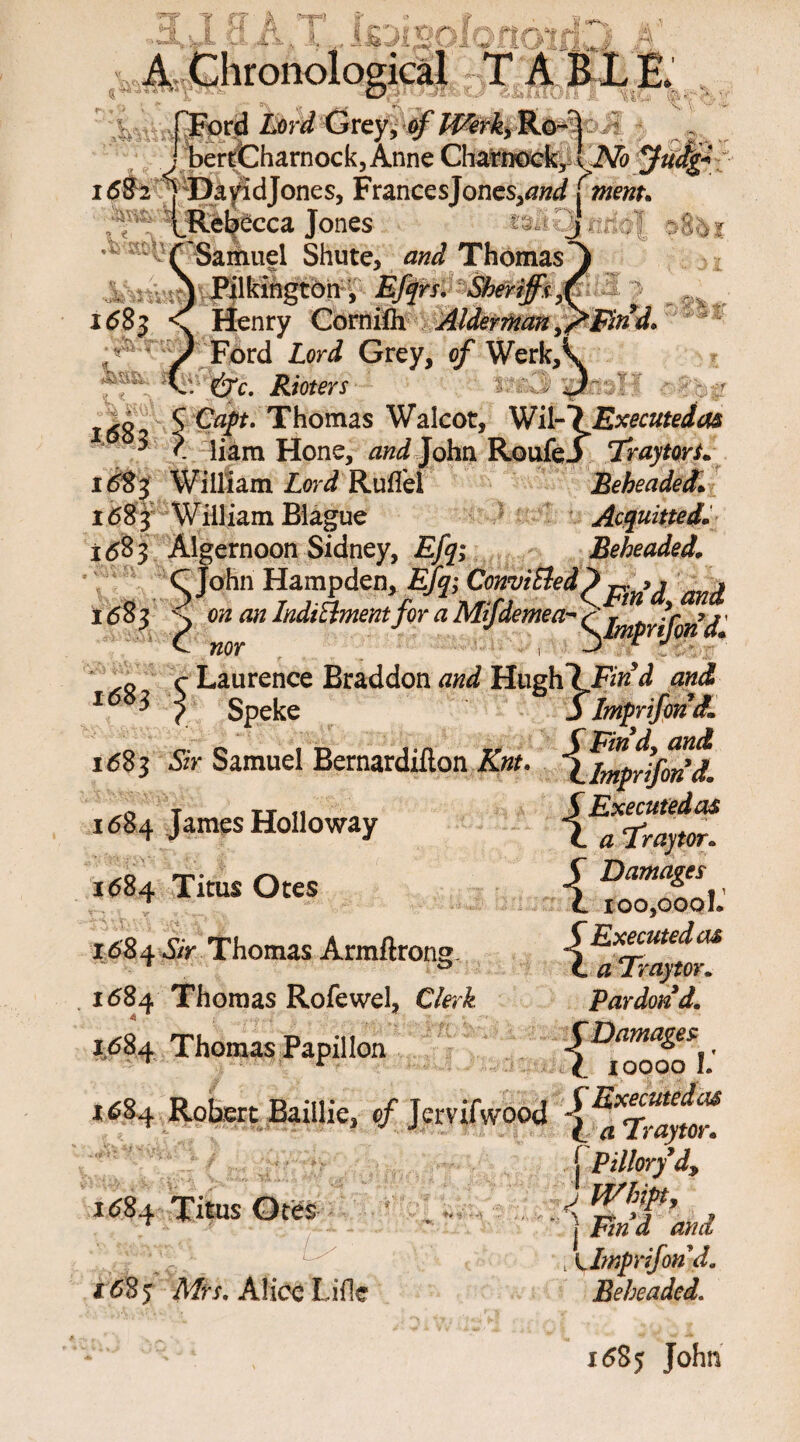 A Chronological TABLE.
Ford Lord Grey, of Werk, Ro-
bert Charnock, Anne Charnock, No Judg-
1682 David Jones, Frances Jones, and ment.
Rebecca Jones
Samuel Shute, and Thomas
Pilkington, Eſqrs. Sheriffs,
1683 Henry Corniſh Alderman, Fin'd.
Ford Lord Grey, of Werk,
&c. Rioters
1683 Capt. Thomas Walcot, Wil- Executed as
liam Hone, and John Rouſe Traytors.
1683 William Lord Ruſſel Beheaded.
1683 William Blague Acquitted.
1683 Algernoon Sidney, Eſq; Beheaded.
John Hampden, Eſq; Convicted Fin'd, and
1683 on an Indictment for a Miſdemea- Impriſon'd.
nor
1683 Laurence Braddon and Hugh Fin'd and
Speke Impriſon'd.
1683 Sir Samuel Bernardiſton Knt. Fin'd, and
Impriſon'd.
1684 James Holloway Executed as
a Traytor.
1684 Titus Otes Damages
100,000l.
1684 Sir Thomas Armſtrong Executed as
a Traytor.
1684 Thomas Roſewel, Clerk Pardon'd.
1684 Thomas Papillon Damages
10000 l.
1684 Robert Baillie, of Jerviſwood Executed as
a Traytor.
Pillory'd,
1684 Titus Otes Whipt,
Fin'd and
Impriſon'd.
1685 Mrs. Alice Liſle Beheaded.
1685 John